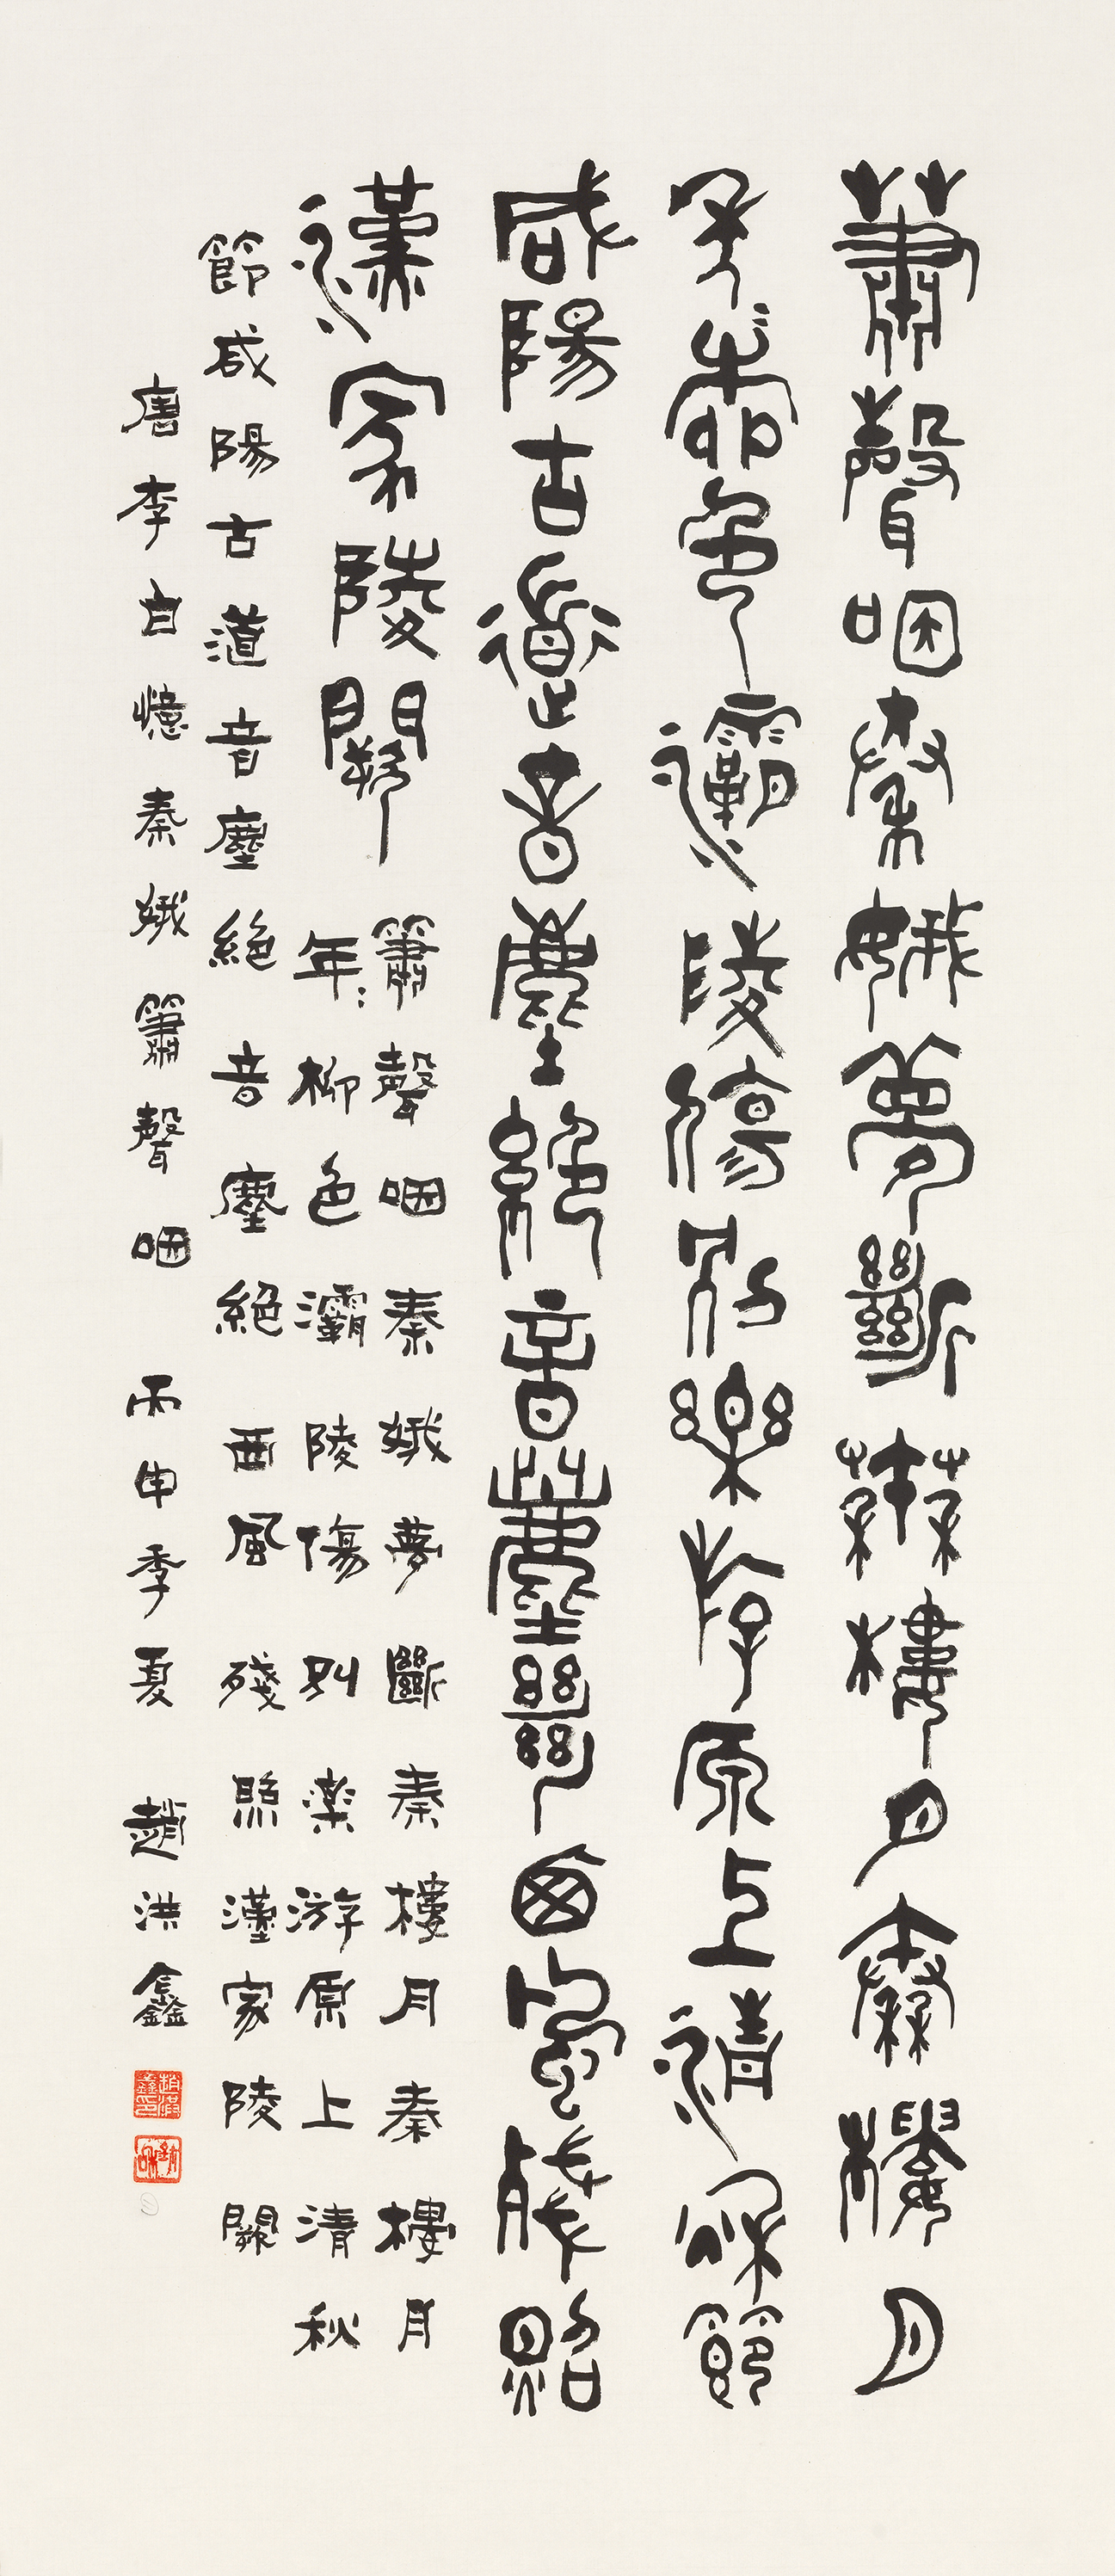 蕭聲咽秦娥夢斷秦樓月秦樓月
年〻柳色灞陵傷別樂游原上清秋節
咸陽古道音塵絕音塵絕西風殘照
漢家陵闕
簫聲咽秦娥夢斷秦樓月秦樓月
年〻柳色灞陵傷別樂游原上清秋
節咸陽古道音塵絕音塵絕西風殘照漢家陵闕
唐李白憶秦娥簫聲咽 丙申季夏 趙洪鑫
趙洪鑫印